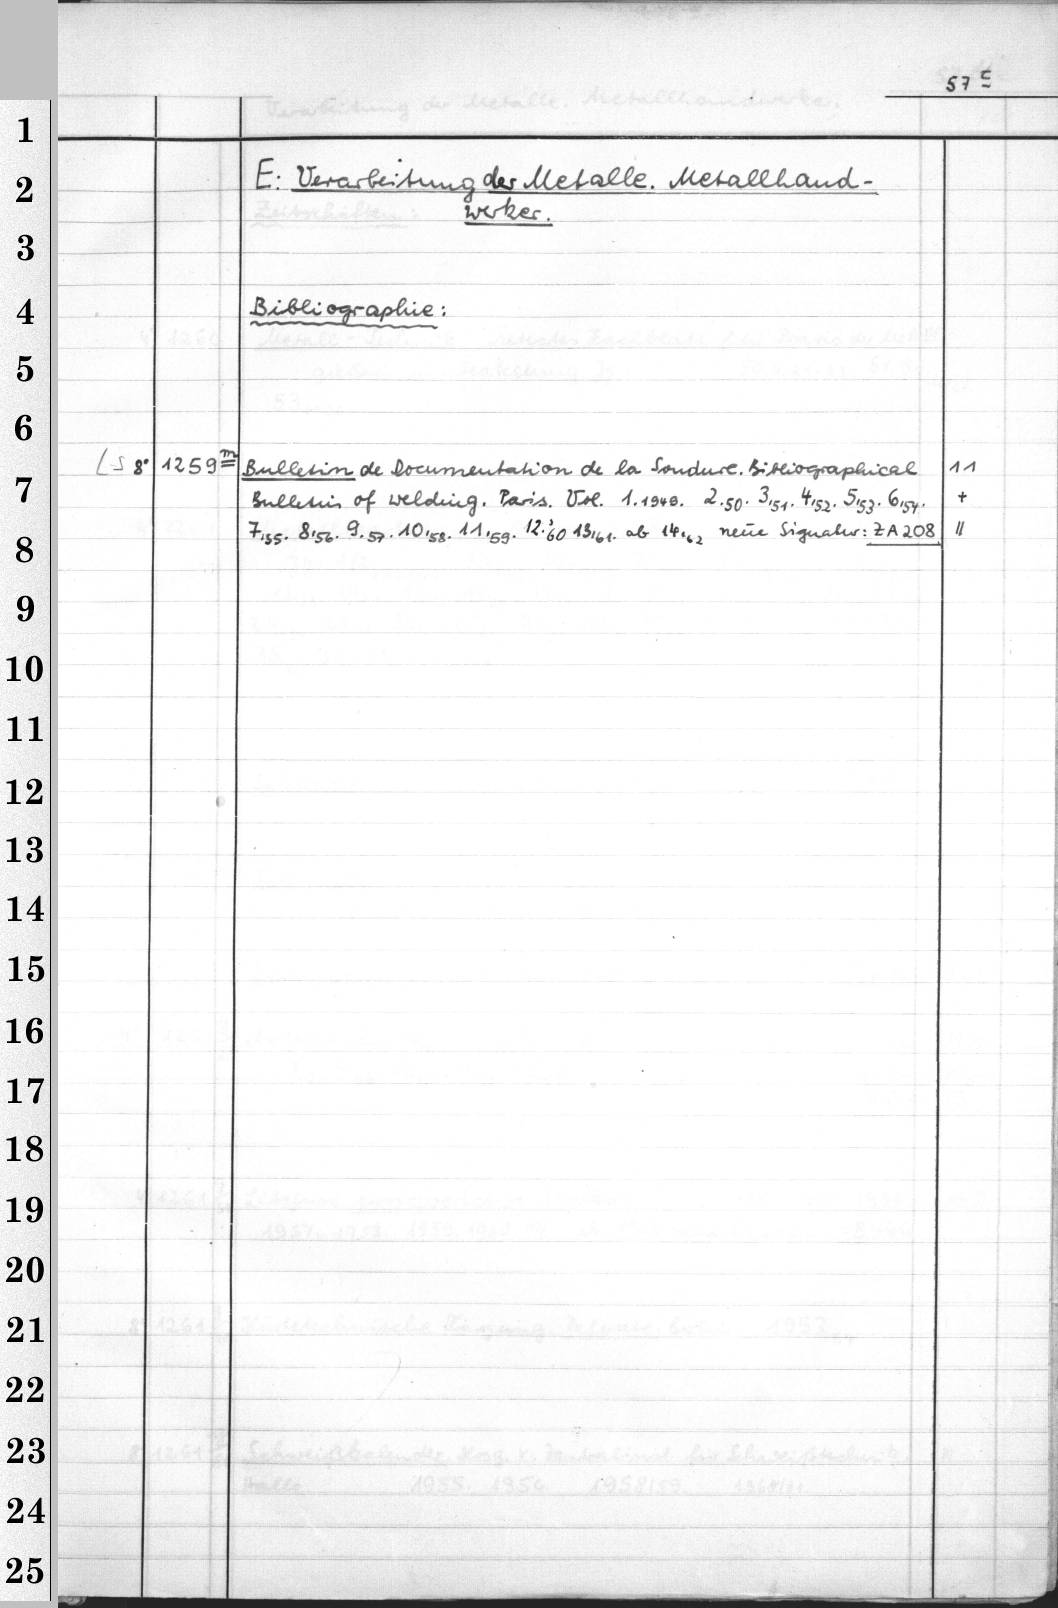 57 c
1
2 E: Verarbeitung der Metalle. Metallhand-
werker.
3
4 Bibliographie:
5
6
7 (S 8° 1259 m Bulletin de Documentation de la Soudure. Bibliographical 11
Bulletin of welding. Paris. Vol. 1.1949. 2.50. 3,51. 4,52. 5,53. 6,54. +
8 7,55. 8,56. 9.57. 10,58. 11,59. 12.'60 13,61. ab 14.,62 neue Signatur: ZA 208 ||
9
10
11
12
13
14
15
16
17
18
19
20
21
22
23
24
25